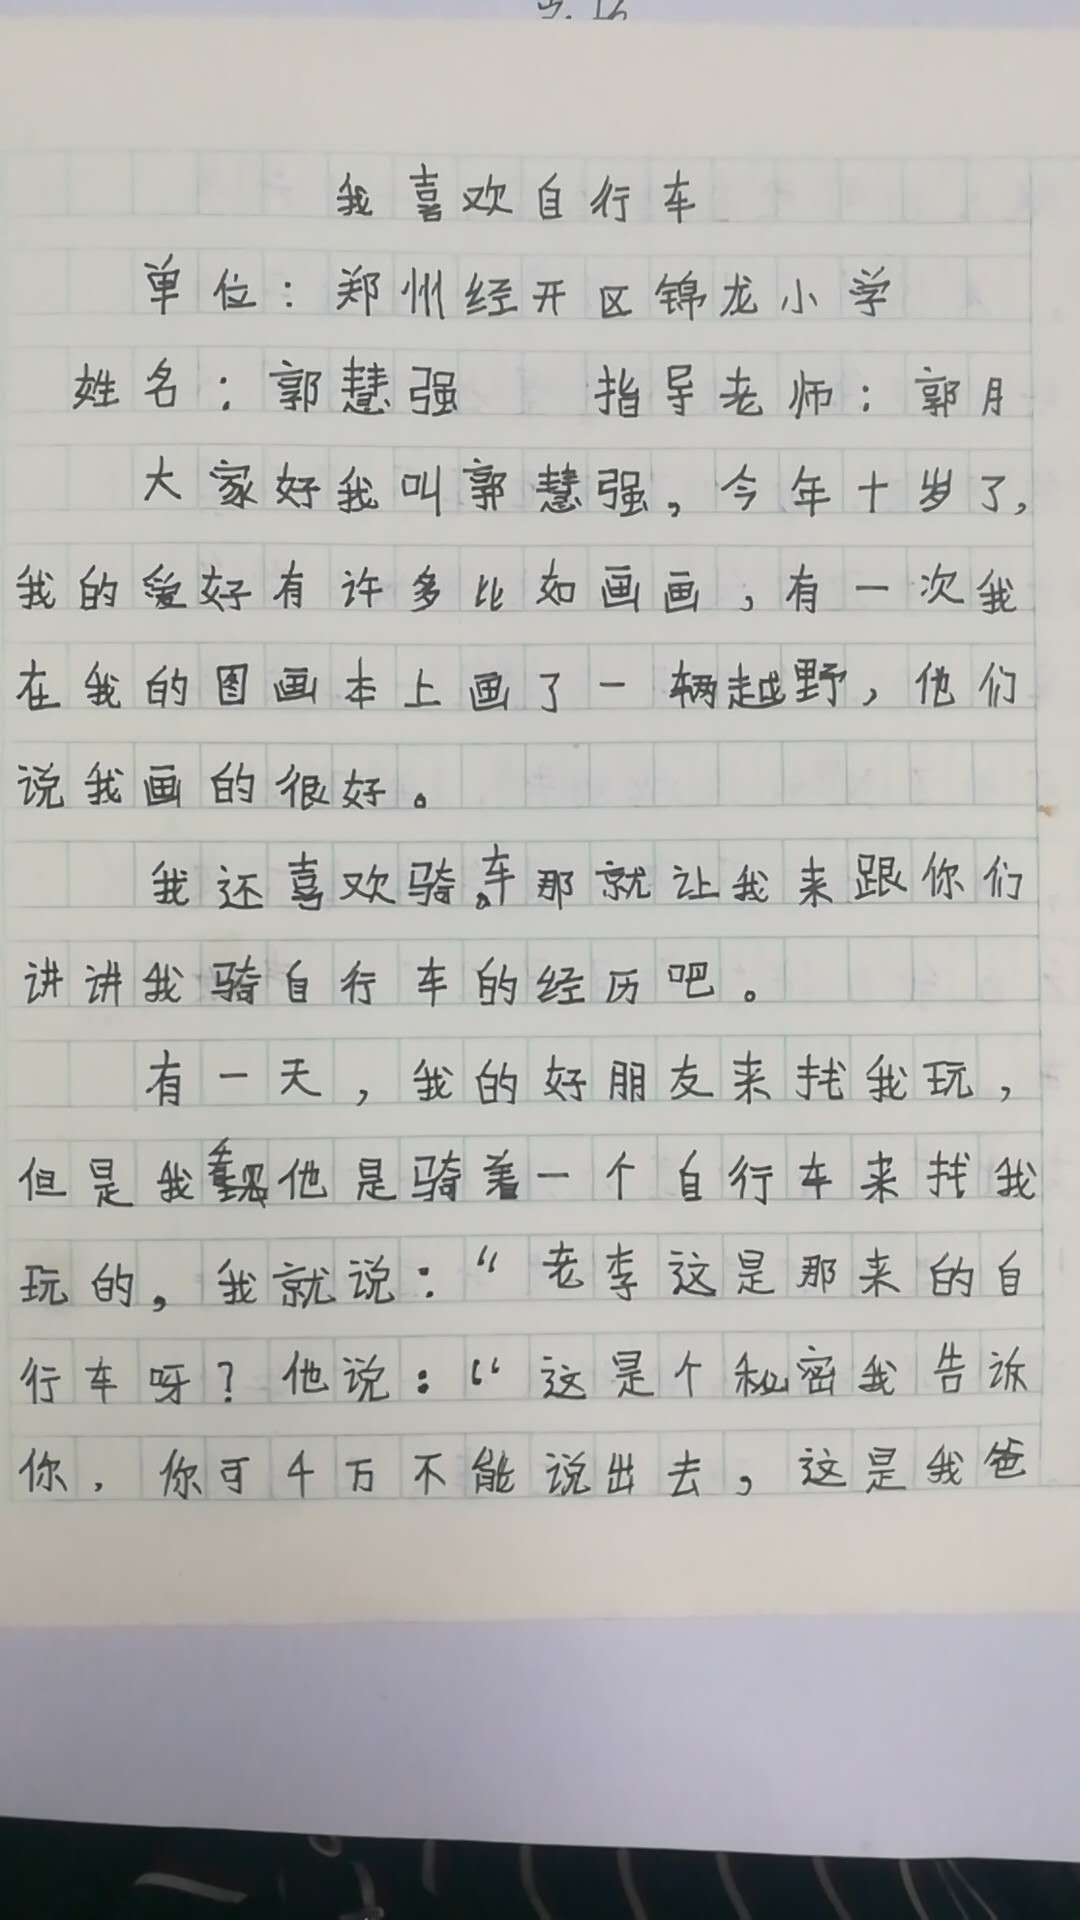 我喜欢自行车
单位：郑州经开区锦龙小学
姓名：郭慧强 指导老师：郭月
大家好我叫郭慧强，今年十岁了，
我的爱好有许多比如画画，有一次我
在我的图画本上画了一辆越野，他们
说我画的很好。
我还喜欢骑车。那就让我来跟你们
讲讲我骑自行车的经历吧。
有一天，我的好朋友来找我玩，
但是我看见他是骑着一个自行车来找我
玩的，我就说：“老李这是那来的自
行车呀？他说：“这是个秘密我告诉
你，你可千万不能说出去，这是我爸